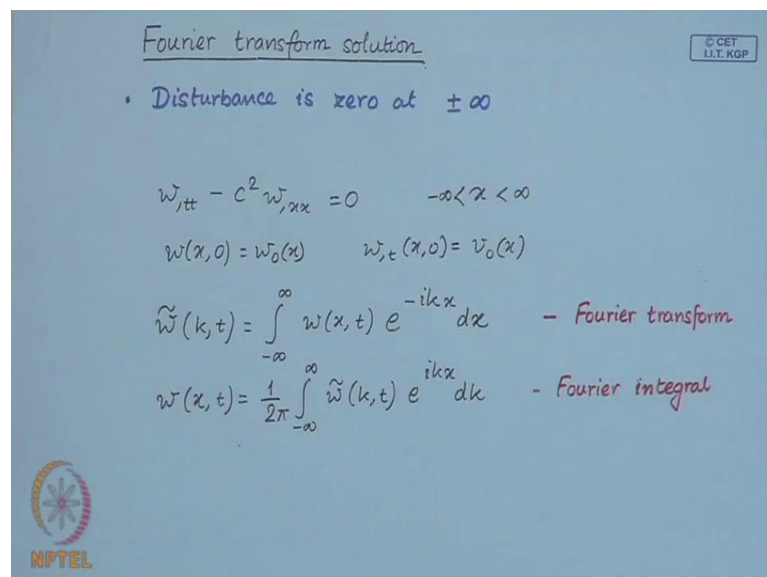 Fourier transform solution
© CET
I.I.T. KGP
• Disturbance is zero at ± ∞
w,tt − c² w,xx = 0    −∞ < x < ∞
w(x,0) = w₀(x)    w,t (x,0) = v₀(x)
w̃(k,t) = ∫_{−∞}^{∞} w(x,t) e^{−ikx} dx  – Fourier transform
w(x,t) = 1/2π ∫_{−∞}^{∞} w̃(k,t) e^{ikx} dk  – Fourier integral
NPTEL